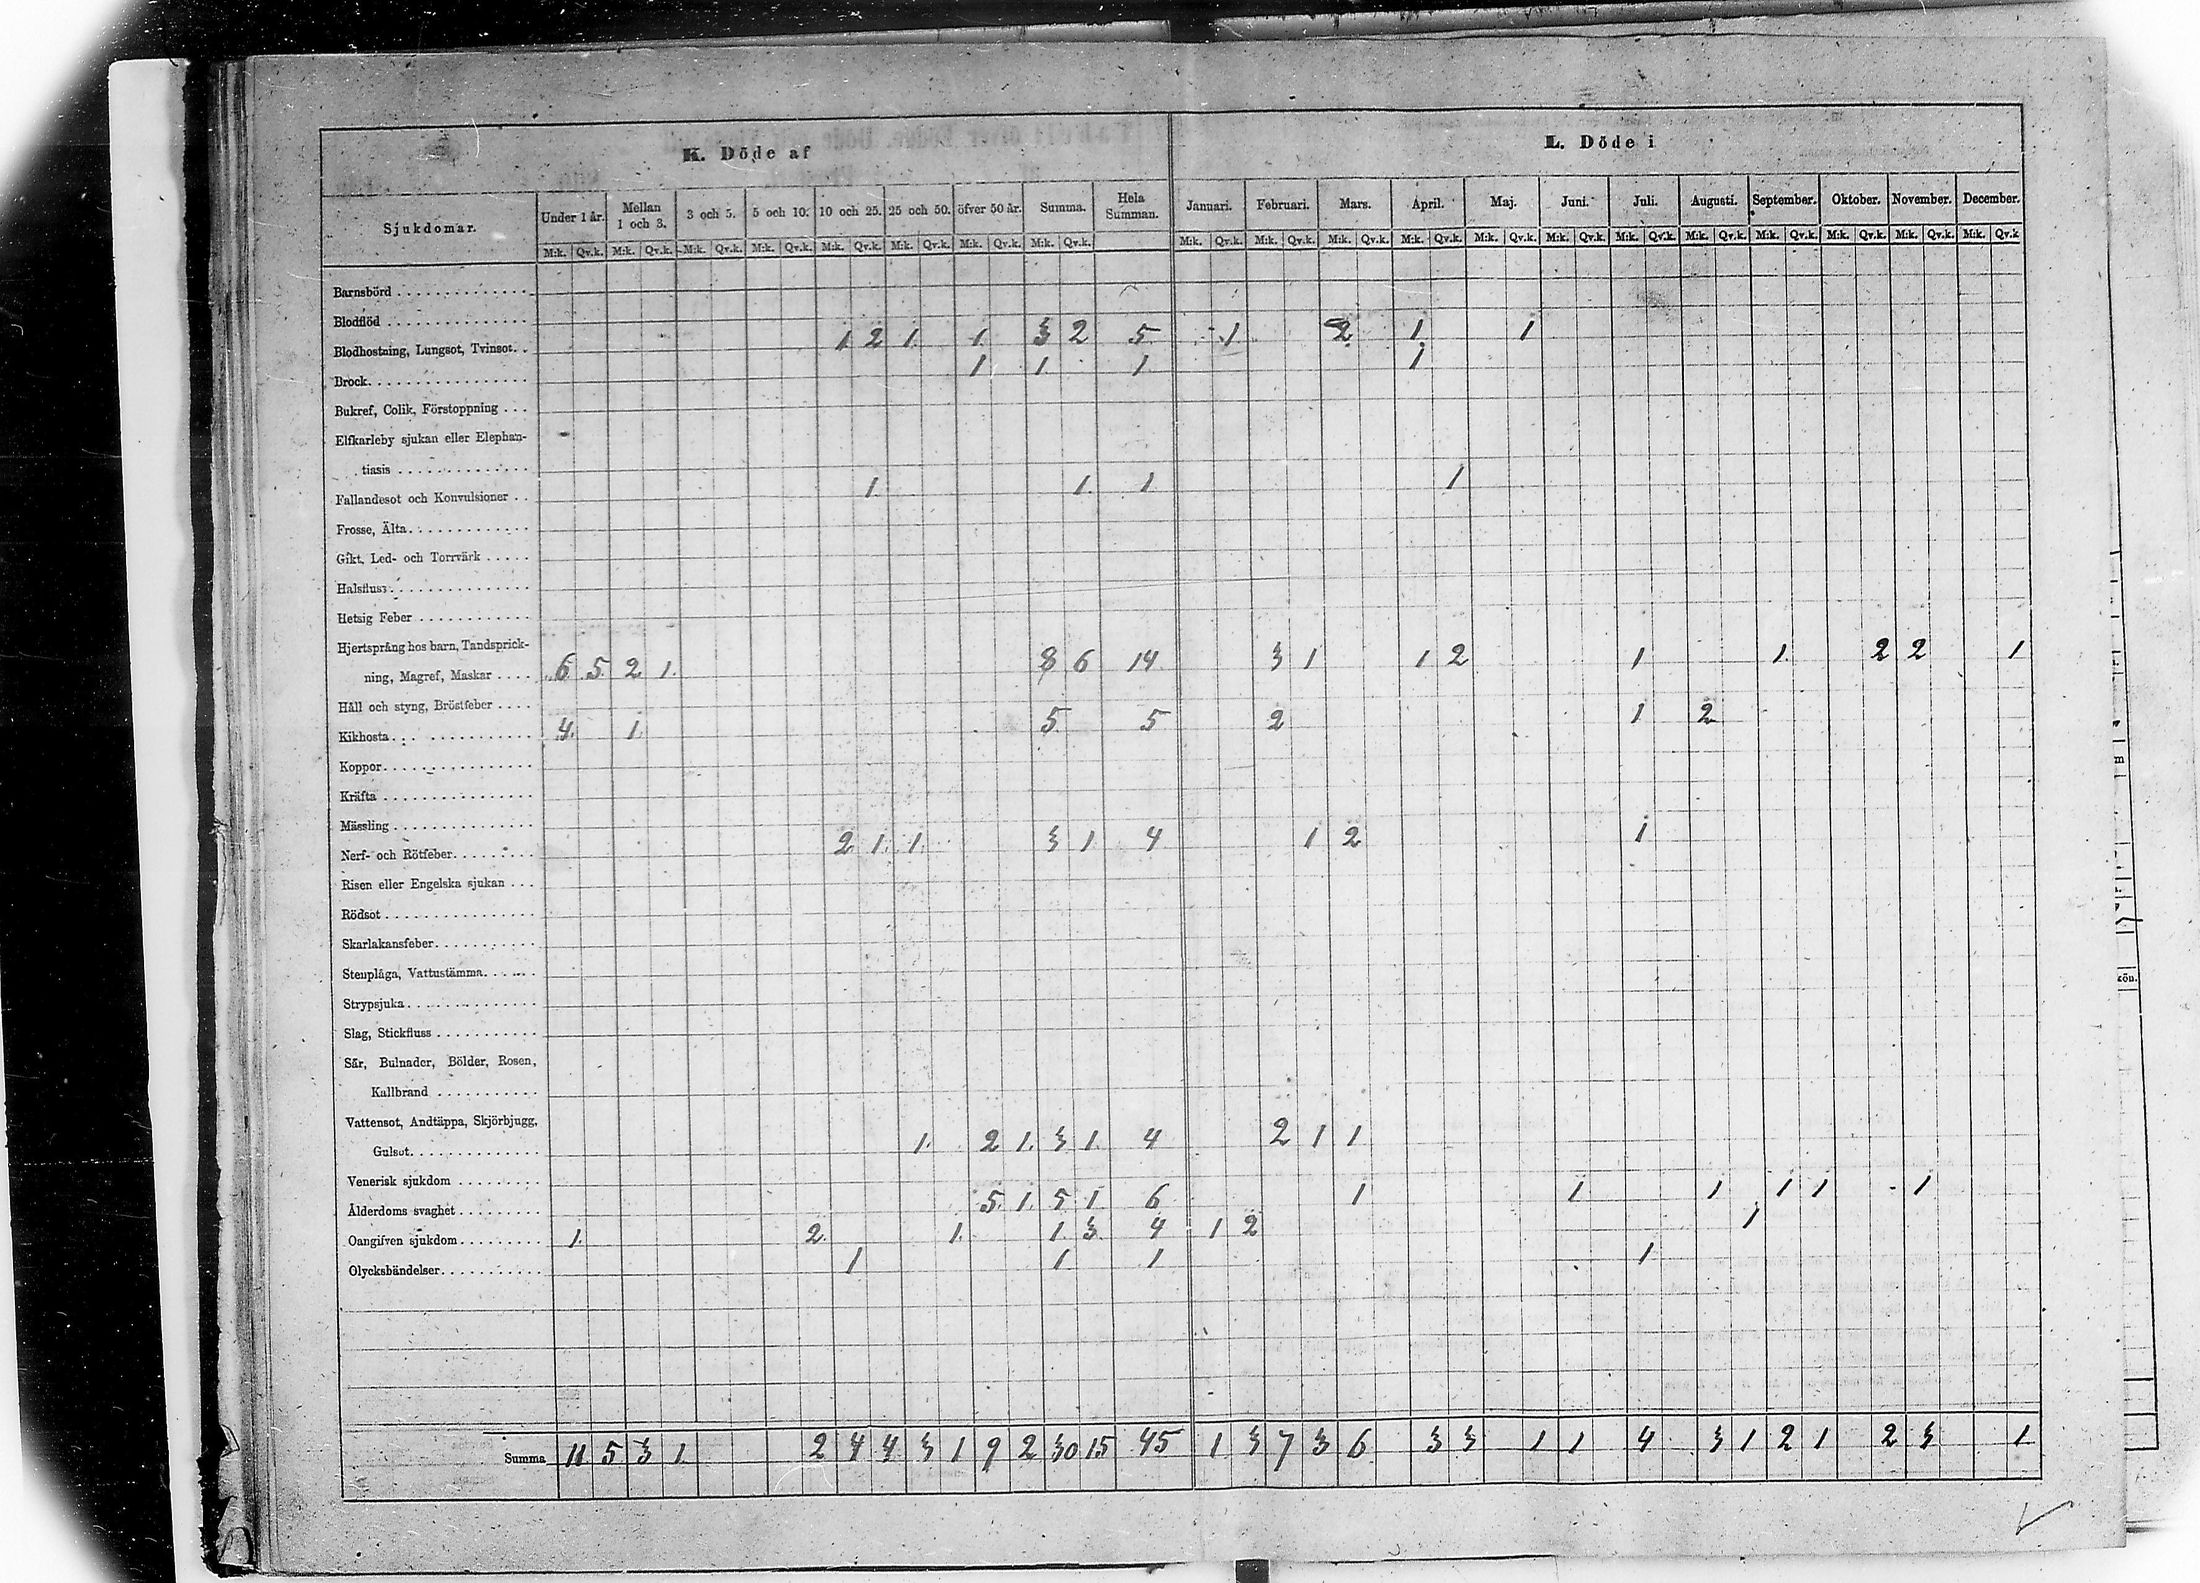 K. Döde af L. Döde i
Sjukdomar. Under 1 år. Mellan 1 och 3. 3 och 5. 5 och 10. 10 och 25. 25 och 50. öfver 50 år. Summa. Hela Summan. Januari. Februari. Mars. April. Maj. Juni. Juli. Augusti. September. Oktober. November. December.
M:k. Qv.k. M:k. Qv.k. M:k. Qv.k. M:k. Qv.k. M:k. Qv.k. M:k. Qv.k. M:k. Qv.k. M:k. Qv.k. M:k. Qv.k. M:k. Qv.k. M:k. Qv.k. M:k. Qv.k. M:k. Qv.k. M:k. Qv.k. M:k. Qv.k. M:k. Qv.k. M:k. Qv.k. M:k. Qv.k. M:k. Qv.k. M:k. Qv.k
Barnsbörd
Blodflöd
Blodhostning, Lungsot, Tvinsot. . 1. 2 1. 1. 3 2 5. 1 2 1 1
Brock 1 1. 1 1
Bukref, Colik, Förstoppning . . .
Elfkarleby sjukan eller Elephan-
tiasis
Fallandesot och Konvulsioner . . 1. 1. 1 1
Frosse, Älta
Gikt, Led- och Torrvärk
Halsfluss
Hetsig Feber
Hjertsprång hos barn, Tandsprick-
ning, Magref, Maskar . . . . 6 5. 2 1. 8 6 14 3 1 1 2 1 1. 2 2 1
Håll och styng, Bröstfeber . . . .
Kikhosta 4. 1. 5. 5 2 1 2
Koppor
Kräfta
Mässling
Nerf- och Rötfeber 2 1. 1. 3 1 4 1 2 1
Risen eller Engelska sjukan . . .
Rödsot
Skarlakansfeber
Stenplåga, Vattustämma
Strypsjuka
Slag, Stickfluss
Sår, Bulnader, Bölder, Rosen,
Kallbrand
Vattensot, Andtäppa, Skjörbjugg,
Gulsot 1. 2 1. 3 1. 4 2 1 1
Venerisk sjukdom
Ålderdoms svaghet 5. 1. 5 1 6 1 1 1 1 1 1
Oangifven sjukdom 1. 2. 1. 1. 3 4 1 2 1
Olycksbändelser 1 1 1 1
Summa 11 5 3 1. 2 4 4 3 1 9 2 30 15 45 1 3 7 3 6 3 3 1 1 4 3 1 2 1 2 3 1
kön.